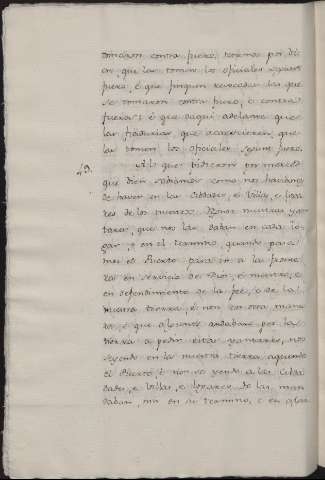 tomaron contra fuero, tenemos por bi
en que las tomen los oficiales segun
fuero, è que fagan revocar las que
se tomaron contra fuero, è contra
fueros: è que daqui adelante que
las fiadurias que acaescieren, que
las tomen los oficiales segun fuero.
49. A lo que pidieron por merced
que bien sabiamos como nos haviamos
de haver en las Cibdades, è Villas, è luga
res de los nuestros Regnos nuestras yan
tares, que nos las daban en cada lo
gar, è en el termino, quando pasa
mos el Puerto para ir a la fronte
ra en servicio de Dios, è nuestro, è
en defendimiento de la fee, è de la
nuestra tierra, è non en otra mane
ra, è que algunos andaban por la
tierra a pedir estas yantares, nos
seyendo en la nuestra tierra, aquende
el Puerto, è non seyendo a las Cibda
dades, è Villas, è logares do las man
daban, nin en su termino, è en algu